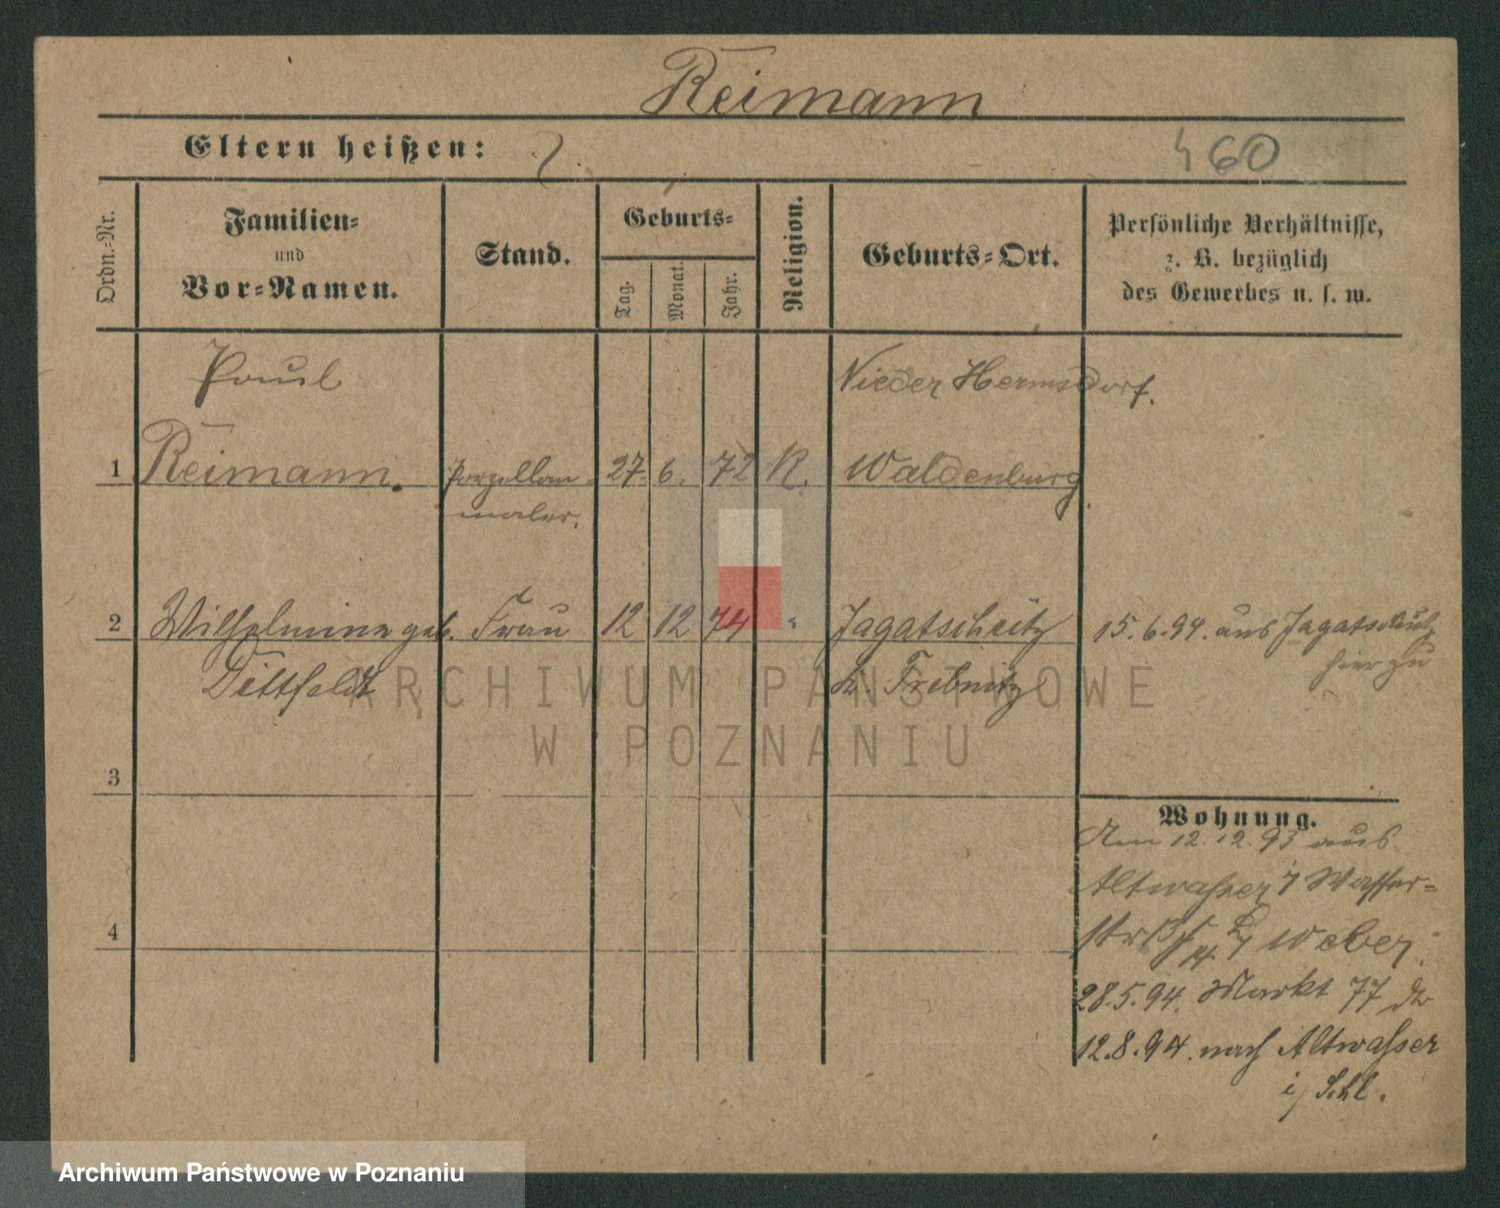 Reimann
Eltern heißen: ?
460
Ordn.=Nr.
Familien=
und
Vor=Namen.
Stand.
Geburts=
Tag.
Monat.
Jahr.
Religion.
Geburts=Ort.
Persönliche Verhältnisse,
z. B. bezüglich
des Gewerbes u. s. w.
Paul
Nieder Hermsdorf.
1 Reimann. Porzellan 27. 6. 72 K. Waldenburg
maler.
2 Wilhelmine geb. Frau 12 12 74 " Jagatschütz 15.6.94. aus Jagatschütz
Dittfeldt Kr. Trebnitz hier zu
ARCHIWUM PAŃSTWOWE
W POZNANIU
3
Wohnung.
Am 12.12.93 aus
Altwasser / Wasser=
14. Weber.
4
28.5.94. Markt 77
12.8.94. nach Altwasser
i/Schl.
Archiwum Państwowe w Poznaniu